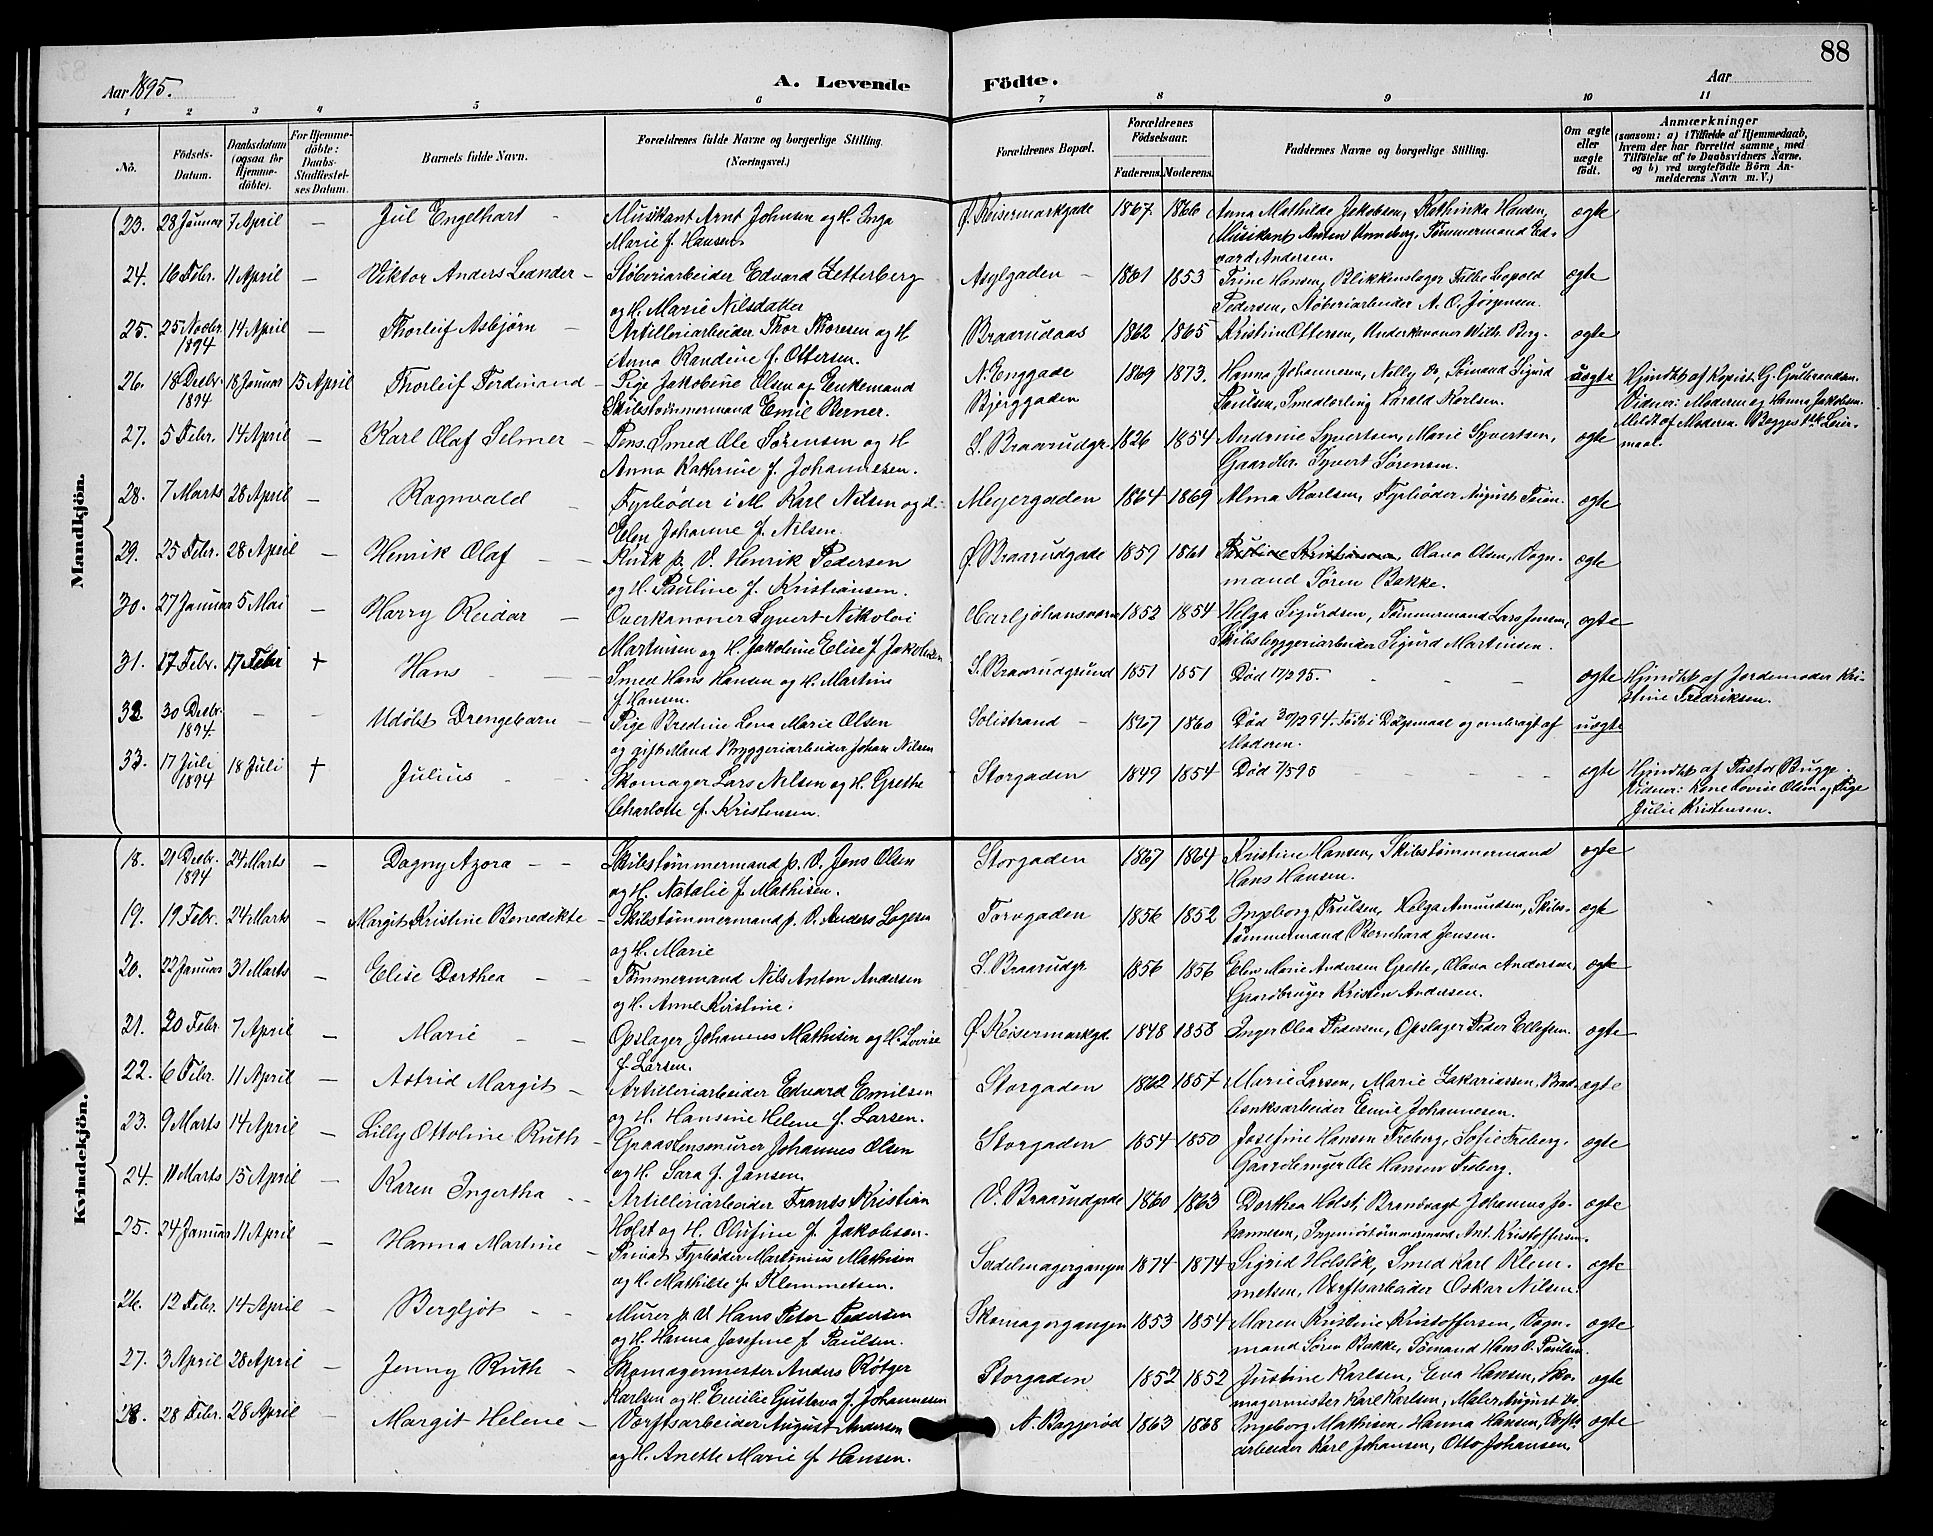 88
Aar 1895.
A. Levende Födte.
Aar
1 2 3 4 5 6 7 8 9 10 11
No.
Födsels-Datum.
Daabsdatum (ogsaa for Hjemmedöbte).
For Hjemmedöbte: Daabs-Stadfæstelses Datum.
Barnets fulde Navn.
Forældrenes fulde Navne og borgerlige Stilling. (Næringsvei.)
Forældrenes Bopæl.
Forældrenes Födselsaar.
Faderens. Moderens.
Faddernes Navne og borgerlige Stilling.
Om ægte eller uægte födt.
Anmærkninger (saasom: a) i Tilfælde af Hjemmedaab, hvem der har forrettet samme, med Tilföielse af to Daabsvidners Navne, og b) ved uægtefödte Börn Anmelderens Navn m. V.)
Mandkjön.
23. 28 Januar 7 April — Jul Engelhart - Musikant Arnt Johnsen og H. Inga Marie f. Hansen Ø. Keisermarkgade 1867 1866 Anna Mathilde Jakobsen, Kathinka Hansen, Musikant Anton Unneberg, Tømmermand Edvard Andersen. ægte
24. 16 Febr. 11 April — Viktor Anders Leander - Støberiarbeider Edvard Zetterberg og H. Marie Nilsdatter Asylgaden - 1861 1853 Trine Hansen, Blikkenslager Leopold Pedersen, Støberiarbeider A. O. Jørgensen. ægte
25. 25 Novbr. 1894 14 April — Thorleif Asbjørn - Artilleriarbeider Thor Thoresen og H. Anna Randine f. Ottersen. Braarudaas 1862 1865 Kristine Ottersen, Underkanoner Wilh. Berg. ægte
26. 18 Decbr. 1894 18 Januar 15 April Thorleif Ferdinand - Pige Jakobine Olsen og Enkemand Skibstømmermand Emil Berner. N. Enggade Bjerggaden 1869 1873. Hanna Johannesen, Nelly do, Sømand Sigurd Paulsen, Smedlærling Harald Karlsen. uægte Hjmdbt af Kapist. G. Gulbrandsen. Vidner: Moderen og Hanna Jakobsen. Meldt af Moderen. Begges 1ste Leiermaal.
27. 5 Febr. 14 April — Karl Olaf Selmer - Pens. Smed Ole Sørensen og H. Anna Kathrine f. Johannesen. S. Braarudgr. 1826 1854 Andrine Syvertsen, Marie Syvertsen, Gaardbr. Syvert Sørensen. ægte
28. 7 Marts 28 April — Ragnvald - Fyrbøder i M. Karl Nilsen og H. Elen Johanne f. Nilsen. Meyergaden 1864 1869 Alma Karlsen, Fyrbøder August ægte
29. 25 Febr. 28 April — Henrik Olaf - - Kusk p. V. Henrik Pedersen og H. Pauline f. Kristiansen. Ø. Braarudgade 1857 1861 Olava Olsen, Vognmand Søren Bakke. ægte
30. 27 Januar 5 Mai — Harry Reidar - Overkanoner Syvert Nikolai Martinsen og H. Jakobine Elise f. Jakobsen Carljohansværn 1852 1854 Helga Sigurdsen, Tømmermand Lars Jensen, Skibsbyggeriarbeider Sigurd Martinsen. ægte
31. 17 Febr. 17 Febr + Hans - - Smed Hans Hansen og H. Martine f. Hansen. S. Braarudgrund 1851 1851 Død 17/2 95. - - - ægte Hjmdbt af Jordemoder Kristine Fredriksen.
32. 30 Decbr. 1894 - - Udøbt Drengebarn - Pige Bredine Lena Marie Olsen og gift Mand Bryggeriarbeider Johan Nilsen Solistrand - 1867 1860 Død 30/12 94. Født i Dølgsmaal og ombragt af Moderen. uægte
33. 17 Juli 1894 18 Juli + Julius - - Skomager Lars Nilsen og H. Grethe Charlotte f. Kristensen. Storgaden 1849 1854 Død 7/5 95 - - - ægte Hjmdbt af Pastor Bugge. Vidner: Kone Lovise Olsen og Pige Julie Kristensen.
Kvindekjön.
18. 21 Decbr. 1894 24 Marts — Dagny Azora - - Skibstømmermand p. V. Jens Olsen og H. Natalie f. Mathisen. Storgaden 1867 1864 Kristine Hansen, Skibstømmermand Hans Hansen. ægte
19. 19 Febr. 24 Marts — Margit Kristine Benedikte - Skibstømmermand p. V. Anders Lagesen og H. Marie Torvgaden 1856 1852 Ingeborg Trulsen, Helga Amundsen, Skibstømmermand Bernhard Jensen. ægte
20. 22 Januar 31 Marts — Elise Dorthea - - Tømmermand Nils Anton Andersen og H. Anne Kristine. S. Braarudgr. 1856 1856 Elen Marie Andersen Grette, Olava Andersen, Gaardbruger Kristen Andersen. ægte
21. 20 Febr. 7 April — Marie - - Opslager Johannes Mathisen og H. Lovise f. Larsen. Ø. Keisermarkgd. 1848 1858 Inger Olea Pedersen, Opslager Peder Ellefsen. ægte
22. 6 Febr. 11 April — Astrid Margit - Artilleriarbeider Edvard Emilsen og H. Hansine Helene f. Larsen. Storgaden 1862 1857 Marie Larsen, Marie Zakariassen, Bradbænksarbeider Emil Johannesen. ægte
23. 9 Marts 14 April — Lilly Ottoline Ruth - Graastensmurer Johannes Olsen og H. Sara f. Jansen. Storgaden 1854 1850 Josefine Hansen Freberg, Sofie Freberg, Gaardbruger Ole Hansen Freberg. ægte
24. 11 Marts 15 April — Karen Ingertha - - Artilleriarbeider Frants Kristian Holst og H. Olufine f. Jakobsen. V. Braarudgade 1860 1863 Dorthea Holst, Brandvagt Johannes Johannesen, Ingeniørtømmermand Ant. Kristoffersen. ægte
25. 24 Januar 11 April — Hanna Martine - Privat Fyrbøder Martinius Mathisen og H. Mathilde f. Klemmetsen. Sadelmagergangen 1874 1874 Sigrid Holsløk, Smed Karl Klemmetsen, Værftsarbeider Oskar Nilsen. ægte
26. 12 Febr. 14 April — Bergljot - - Murer p. V. Hans Peter Pedersen og H. Hanna Josefine f. Paulsen. Skomagergangen 1853 1854 Maren Kristine Kristoffersen, Vognmand Søren Bakke, Sømand Hans O. Paulsen. ægte
27. 3 April 28 April — Jenny Ruth - Skomagermester Anders Røtger Karlsen og H. Emilie Gustava f. Johannesen Storgaden 1852 1852 Justine Karlsen, Eva Hansen, Skomagermester Karl Karlsen, Maler August do. ægte
28. 28 Febr. 28 April — Margit Helene - Værftsarbeider August Andersen og H. Anette Marie f. Hansen. N. Baggerød 1863 1868 Ingeborg Mathisen, Hanna Hansen, Værftsarbeider Karl Johansen, Otto Johansen. ægte